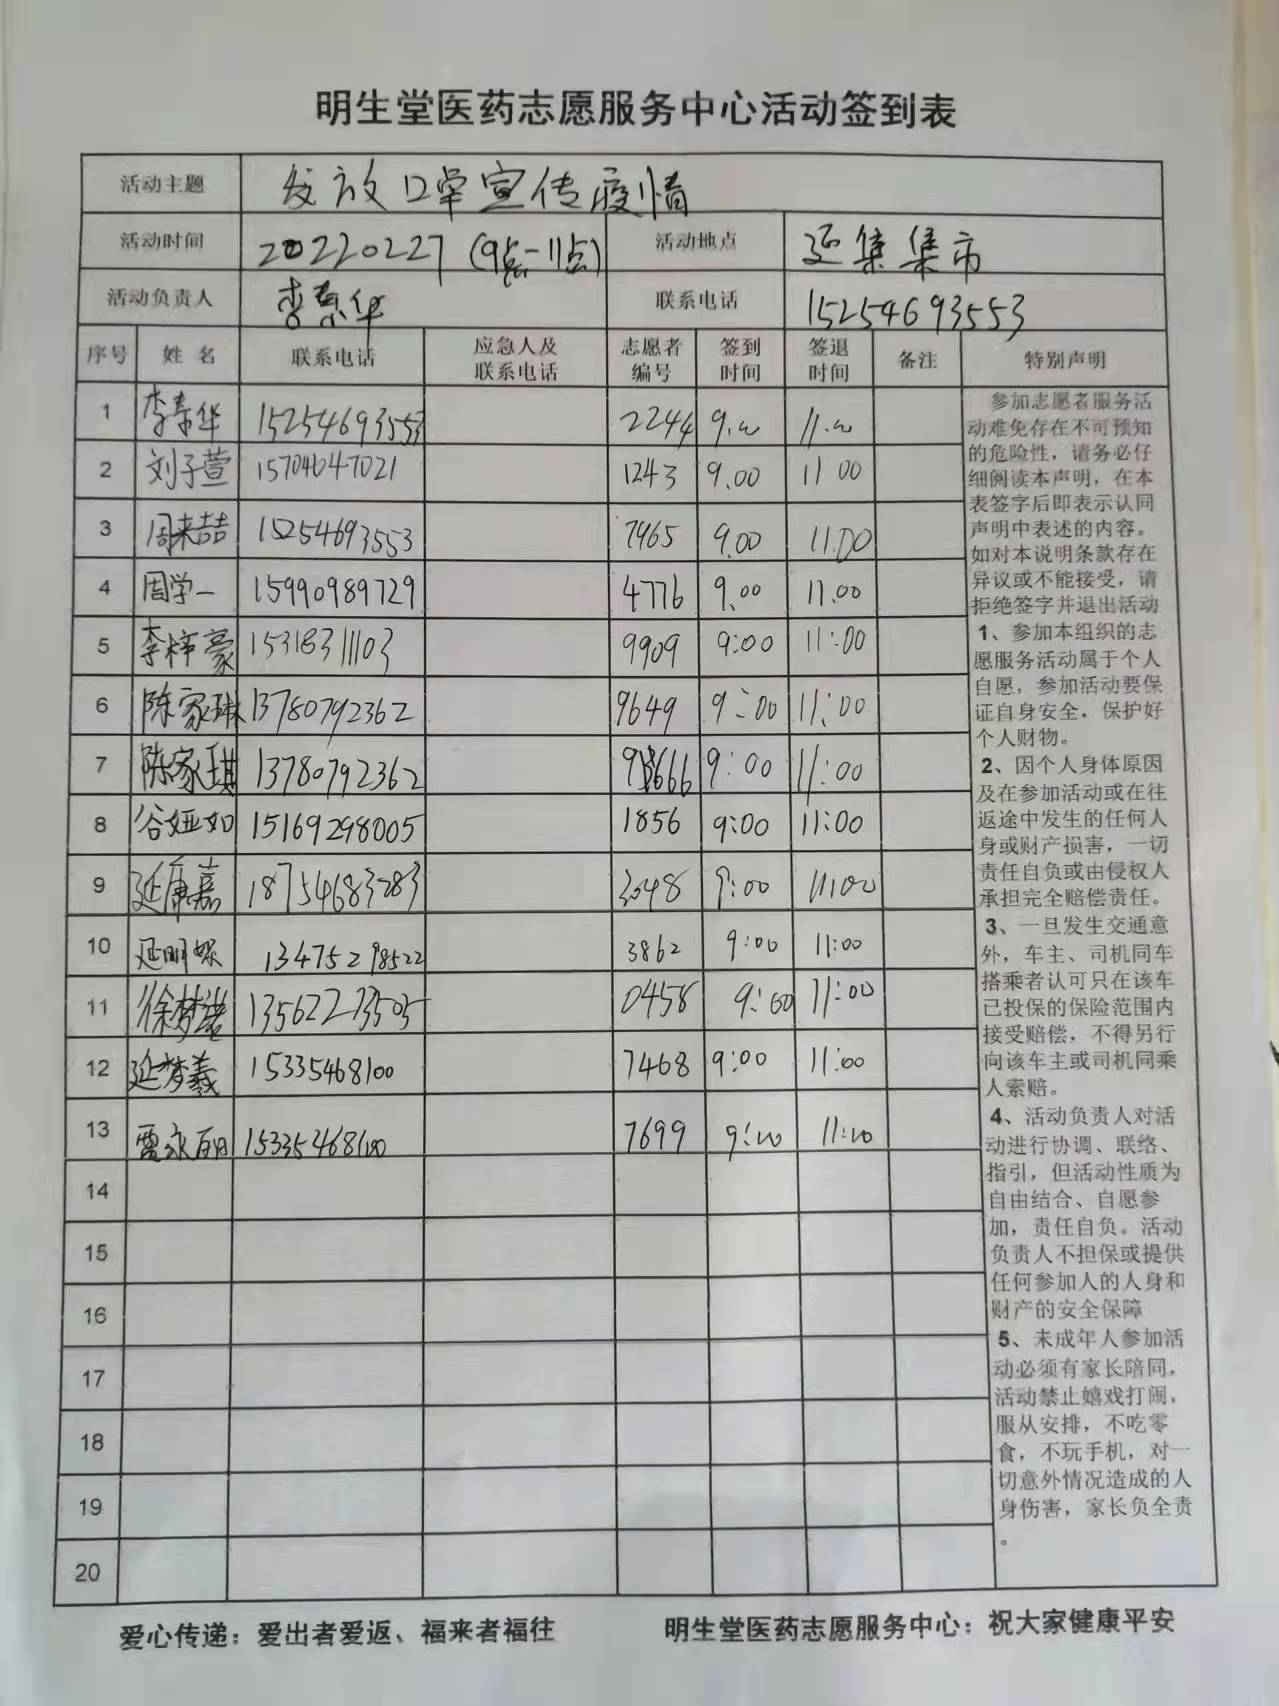 明生堂医药志愿服务中心活动签到表
活动主题 发放口罩宣传疫情
活动时间 20220227 (9点-11点) 活动地点 延集集市
活动负责人 李素华 联系电话 15254693553
序号 姓名 联系电话 应急人及联系电话 志愿者编号 签到时间 签退时间 备注 特别声明
1 李素华 15254693553 2244 9.00 11.00
2 刘子萱 15704647021 1243 9.00 11 00
3 周来喆 15254693553 7965 9.00 11.00
4 周学一 15990989729 4776 9.00 11.00
5 李梓豪 15318311103 9909 9:00 11:00
6 陈家琳 13780792362 9649 9:00 11:00
7 陈家琪 13780792362 9:00 11:00
8 谷娅如 15169298005 1856 9:00 11:00
9 延康嘉 18754683783 3048 9:00 11:00
10 延明 13475298522 3862 9:00 11:00
11 徐梦 13562273505 0458 9:00 11:00
12 延梦羲 15335468100 7468 9:00 11:00
13 永 15335468100 7699 9:00 11:00
14
15
16
17
18
19
20
参加志愿者服务活
动难免存在不可预知
的危险性，请务必仔
细阅读本声明，在本
表签字后即表示认同
声明中表述的内容。
如对本说明条款存在
异议或不能接受，请
拒绝签字并退出活动
1、参加本组织的志
愿服务活动属于个人
自愿，参加活动要保
证自身安全，保护好
个人财物。
2、因个人身体原因
及在参加活动或在往
返途中发生的任何人
身或财产损害，一切
责任自负或由侵权人
承担完全赔偿责任。
3、一旦发生交通意
外，车主、司机同车
搭乘者认可只在该车
已投保的保险范围内
接受赔偿，不得另行
向该车主或司机同乘
人索赔。
4、活动负责人对活
动进行协调、联络、
指引，但活动性质为
自由结合、自愿参
加，责任自负。活动
负责人不担保或提供
任何参加人的人身和
财产的安全保障
5、未成年人参加活
动必须有家长陪同，
活动禁止嬉戏打闹，
服从安排，不吃零
食，不玩手机，对一
切意外情况造成的人
身伤害，家长负全责
。
爱心传递：爱出者爱返、福来者福往 明生堂医药志愿服务中心：祝大家健康平安